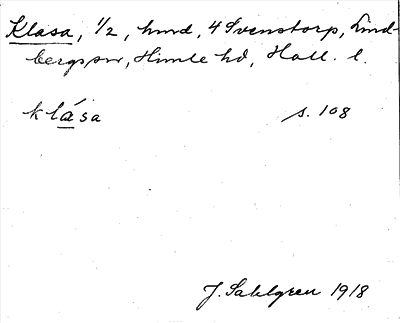 Klasa, 1/2, hmd, 4 Svenstorp, Lind-
bergs sn, Himle hd, Hall. l.
klása s. 108
J. Sahlgren 1918